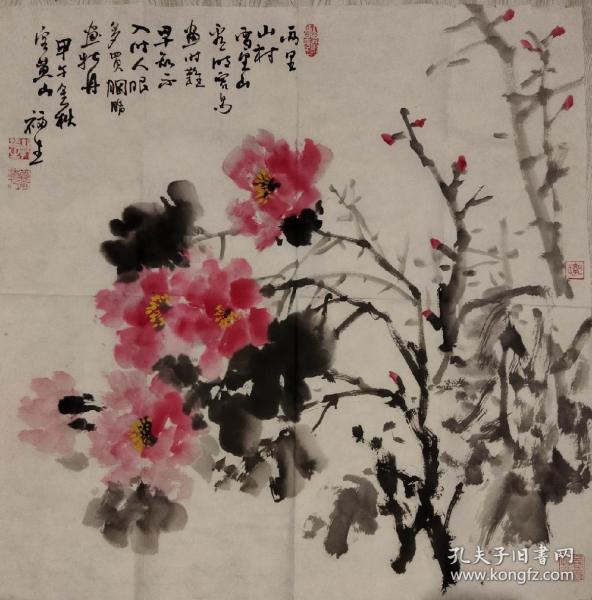 雨里
山村
雪里山
看时容易
画时难
早知不
入时人眼
多買胭脂
画牡丹
甲午金秋
黄山
福生
孔夫子旧书网
www.kongfz.com